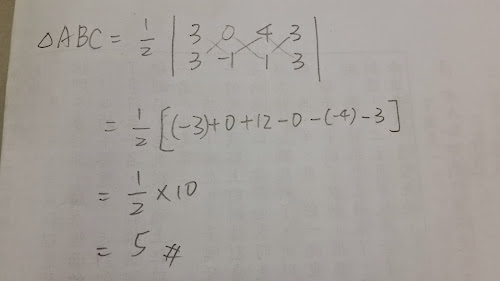 △ABC = 1/2 | 3 0 4 3
3 -1 1 3 |
= 1/2 [(-3)+0+12-0-(-4)-3]
= 1/2 × 10
= 5 #